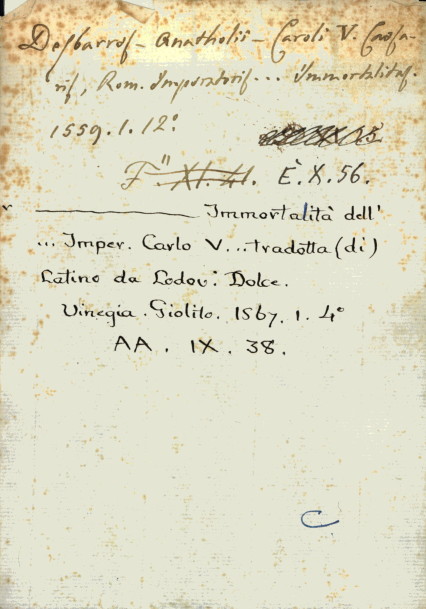 Desbarros - Anatholii - Caroli V. Caesa-
ris, Rom. Imperatoris ... Immortalitas.
1559. 1. 12°
F" XI. 41. È. X. 56.
Immortalità dell'
... Imper. Carlo V... tradotta (di)
Latino da Lodov: Dolce.
Vinegia. Giolito. 1567. 1. 4°
AA. IX. 38.
C